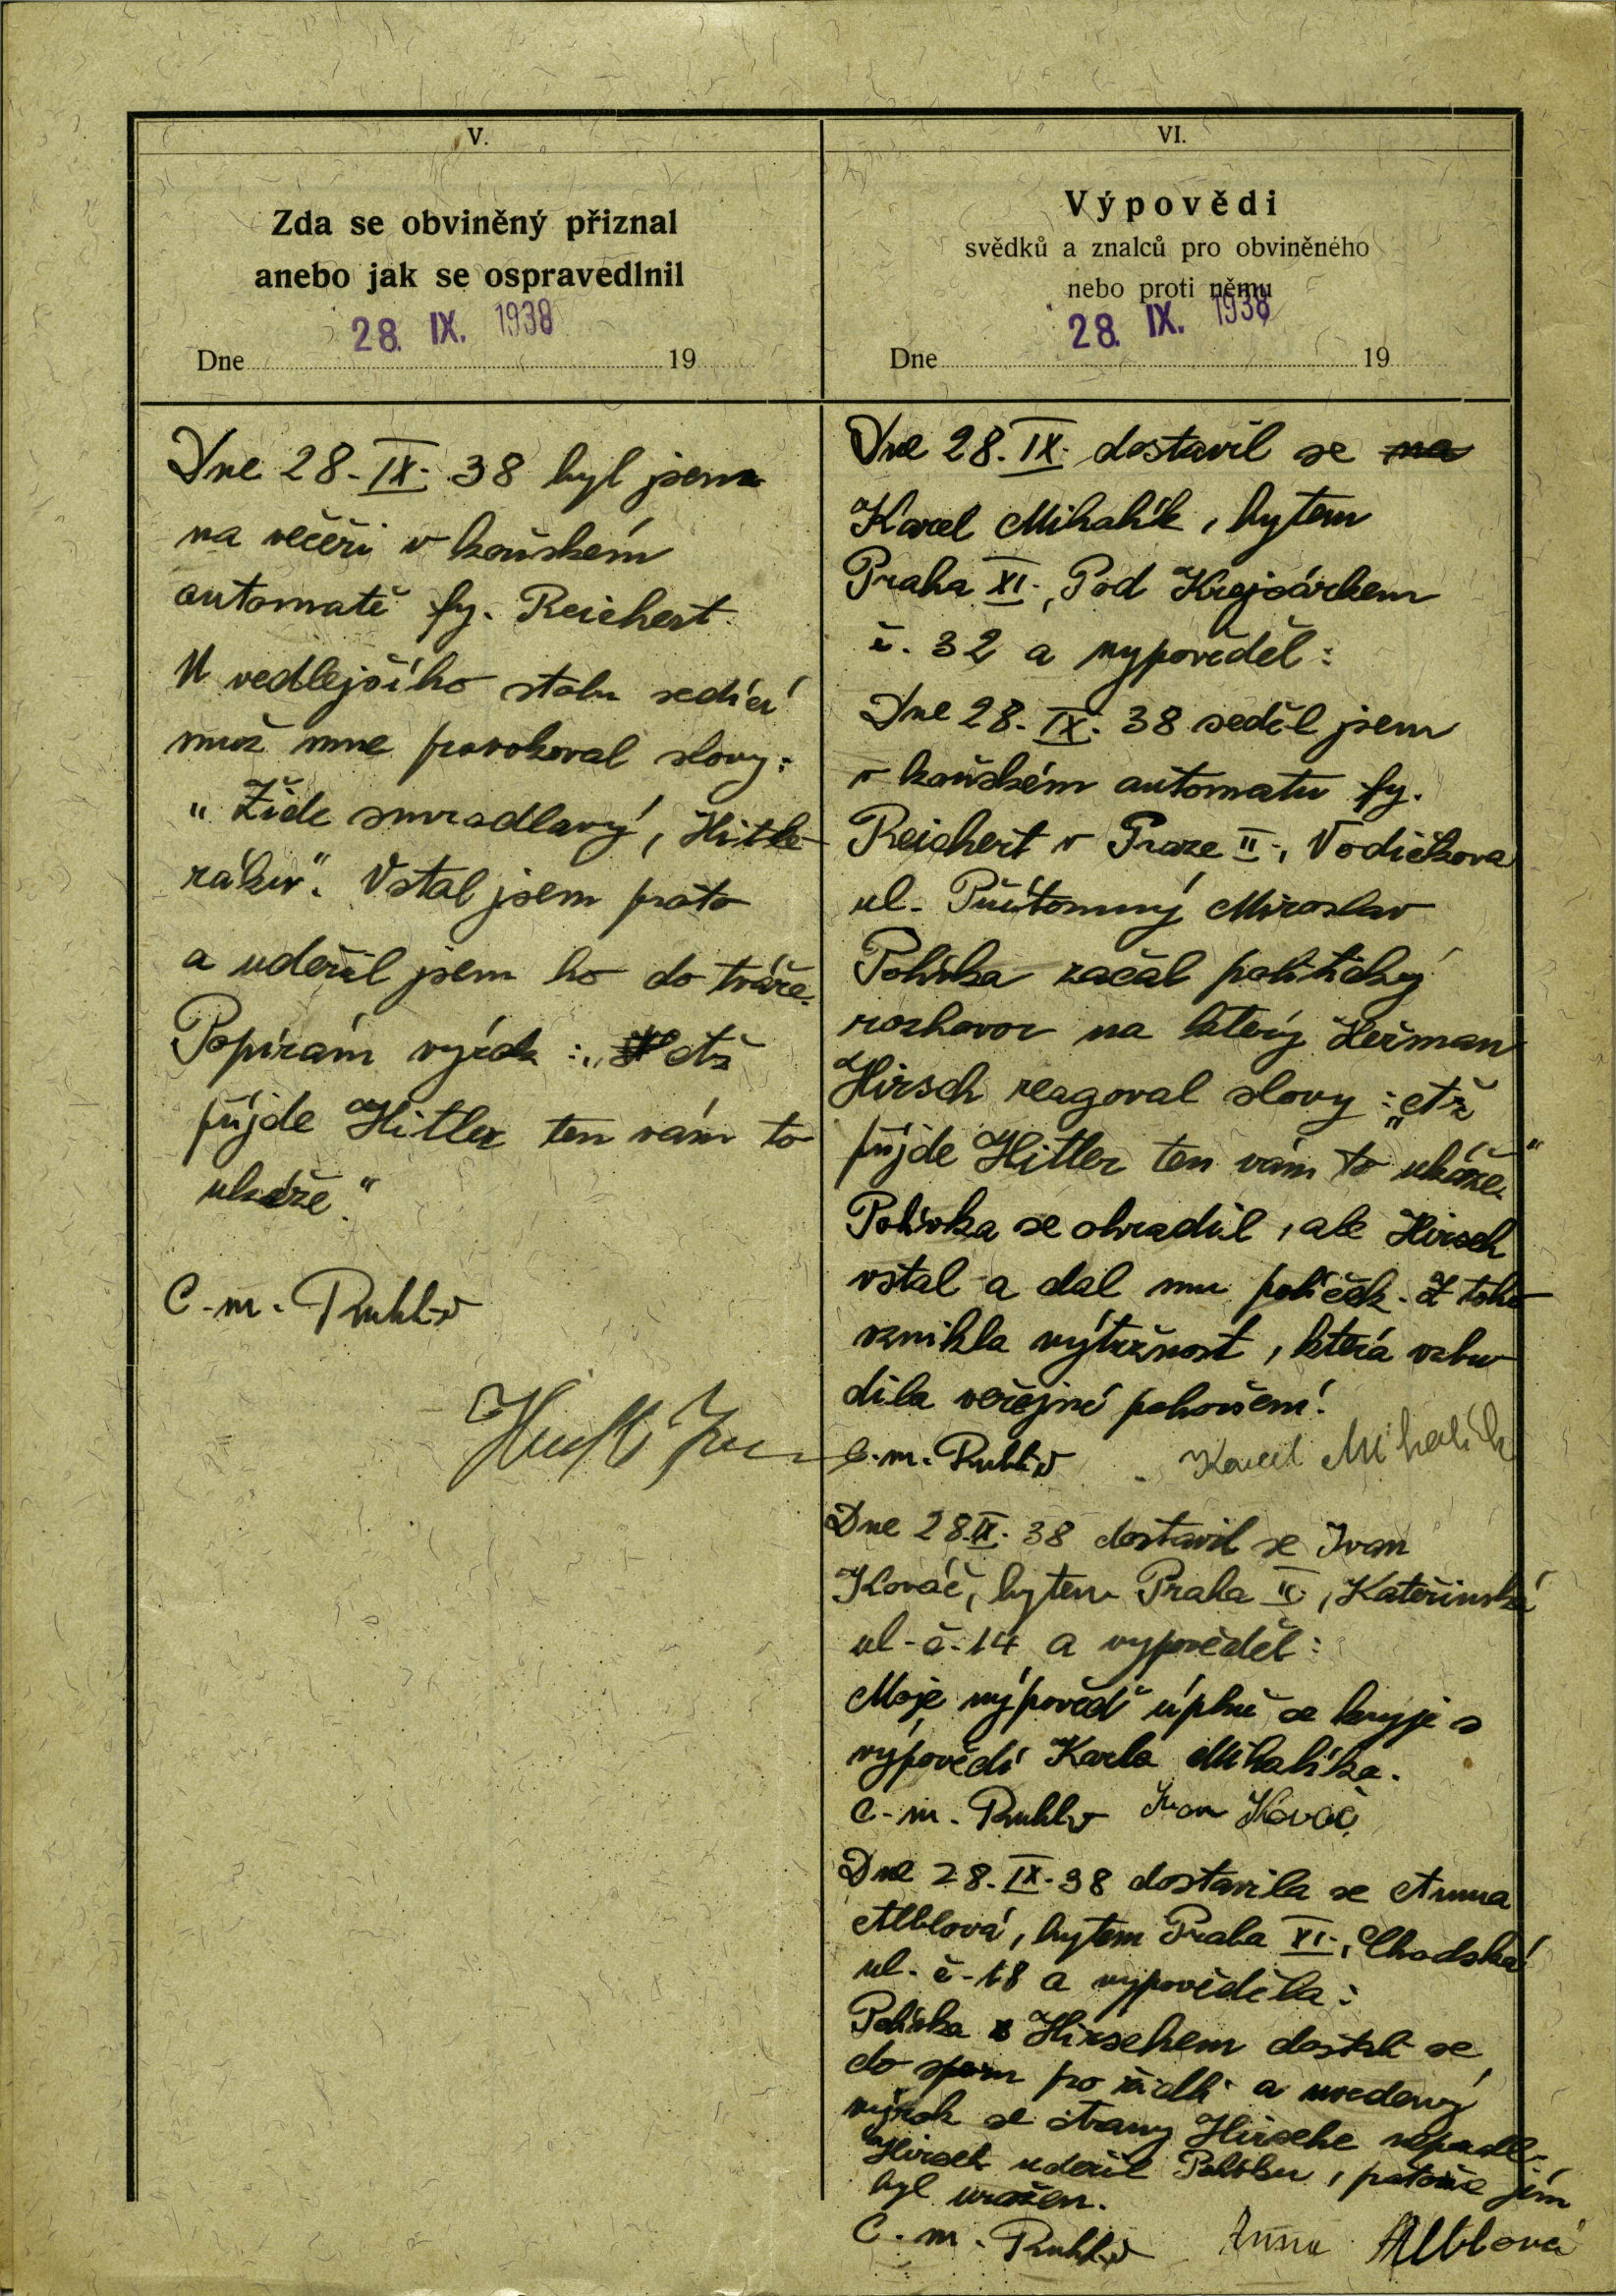 V.
Zda se obviněný přiznal
anebo jak se ospravedlnil
28. IX. 1938
Dne 19
Dne 28. IX. 38 byl jsem
na večeři v koňském
automatě fy. Reichert.
U vedlejšího stolu sedící
muž mne provokoval slovy:
"Žide smradlavý, Hitle-
ráku". Vstal jsem proto
a udeřil jsem ho do tváře.
Popírám výrok: "Až
půjde Hitler ten vám to
ukáže."
C. m. Ruhl
VI.
Výpovědi
svědků a znalců pro obviněného
nebo proti němu
28. IX. 1938
Dne 19
Dne 28. IX. dostavil se na
Karel Mihalík, bytem
Praha XI., Pod Krejcárkem
č. 32 a vypověděl:
Dne 28. IX. 38 seděl jsem
v koňském automatu fy.
Reichert v Praze II., Vodičkova
ul. Přítomný Miroslav
Polívka začal politický
rozhovor na který Heřman
Hirsch reagoval slovy: "Až
půjde Hitler ten vám to ukáže."
Polívka se ohradil, ale Hirsch
vstal a dal mu políček. Z toho
vznikla výtržnost, která vzbu
dila veřejné pohoršení.
C. m. Ruhl Karel Mihalík
Dne 28. IX. 38 dostavil se Ivan
Kováč, bytem Praha II., Kateřinská
ul. č. 14 a vypověděl:
Moje výpověď úplně se kryje s
výpovědí Karla Mihalíka.
C. m. Ruhl Ivan Kováč
Dne 28. IX. 38 dostavila se Anna
Alblová, bytem Praha XI., Chodská
ul. č. 18 a vypověděla:
Polívka s Hirschem dostali se
do sporu pro židli a uvedený
výrok se strany Hirsche nepadl.
Hirsch udeřil Polívku, protože jím
byl uražen.
C. m. Ruhl Anna Alblová